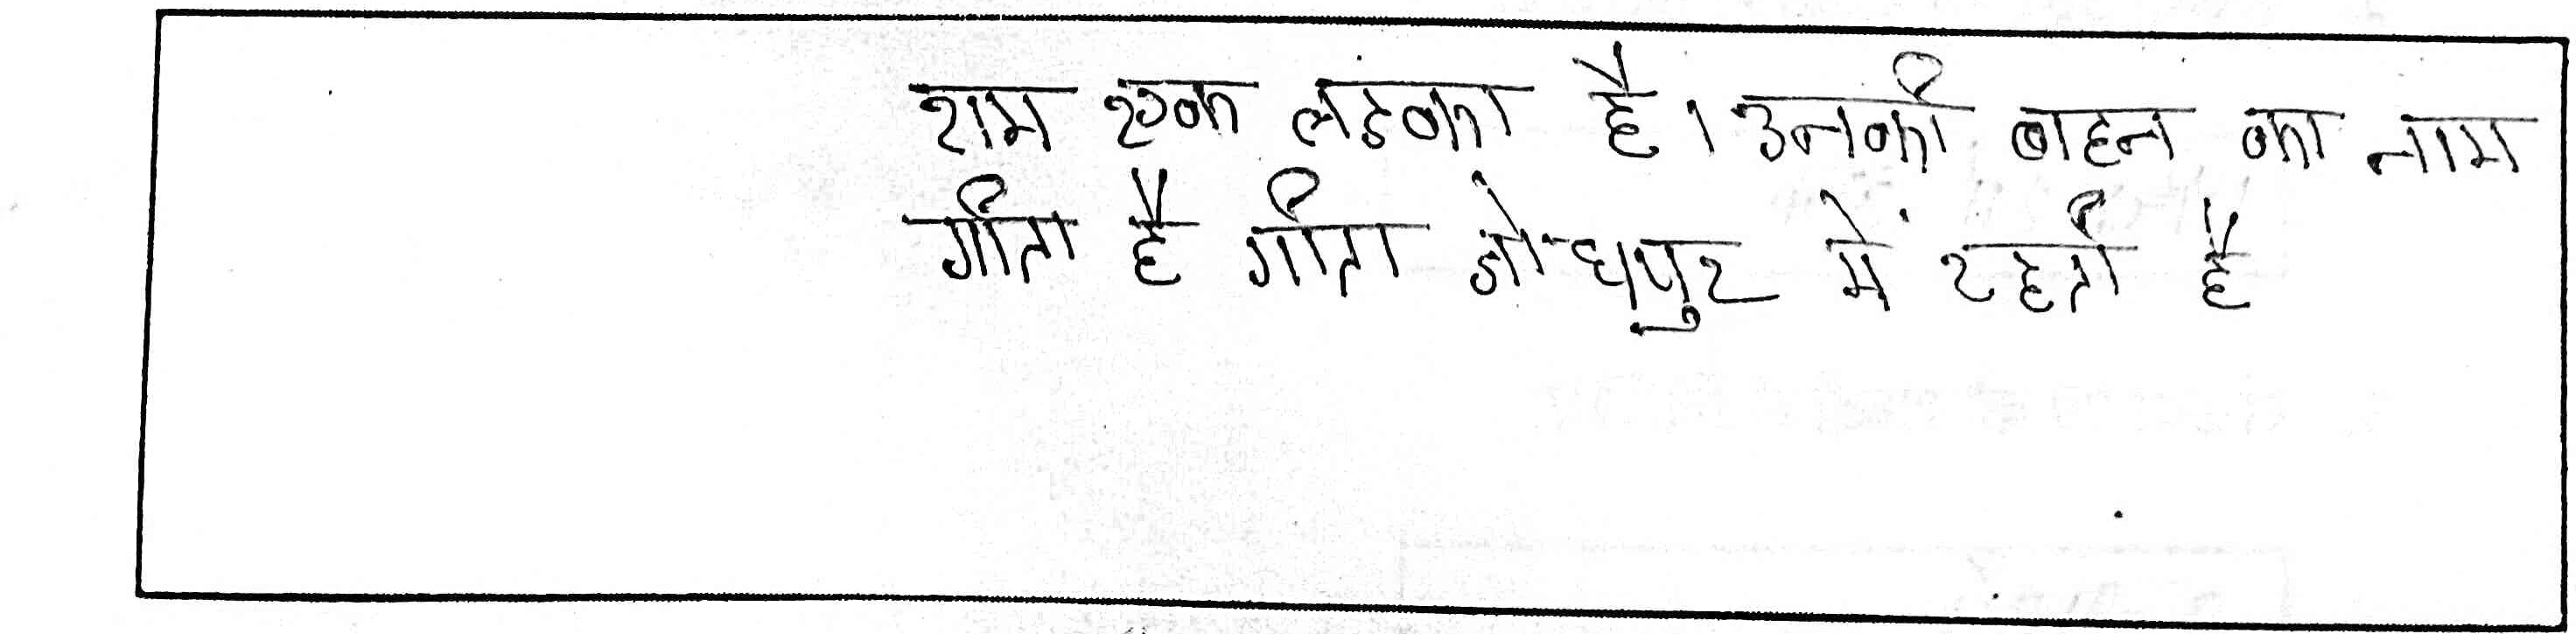 राम एक लडका है। उनकी बहन का नाम
गीता है गीता जोधपुर में रहती है